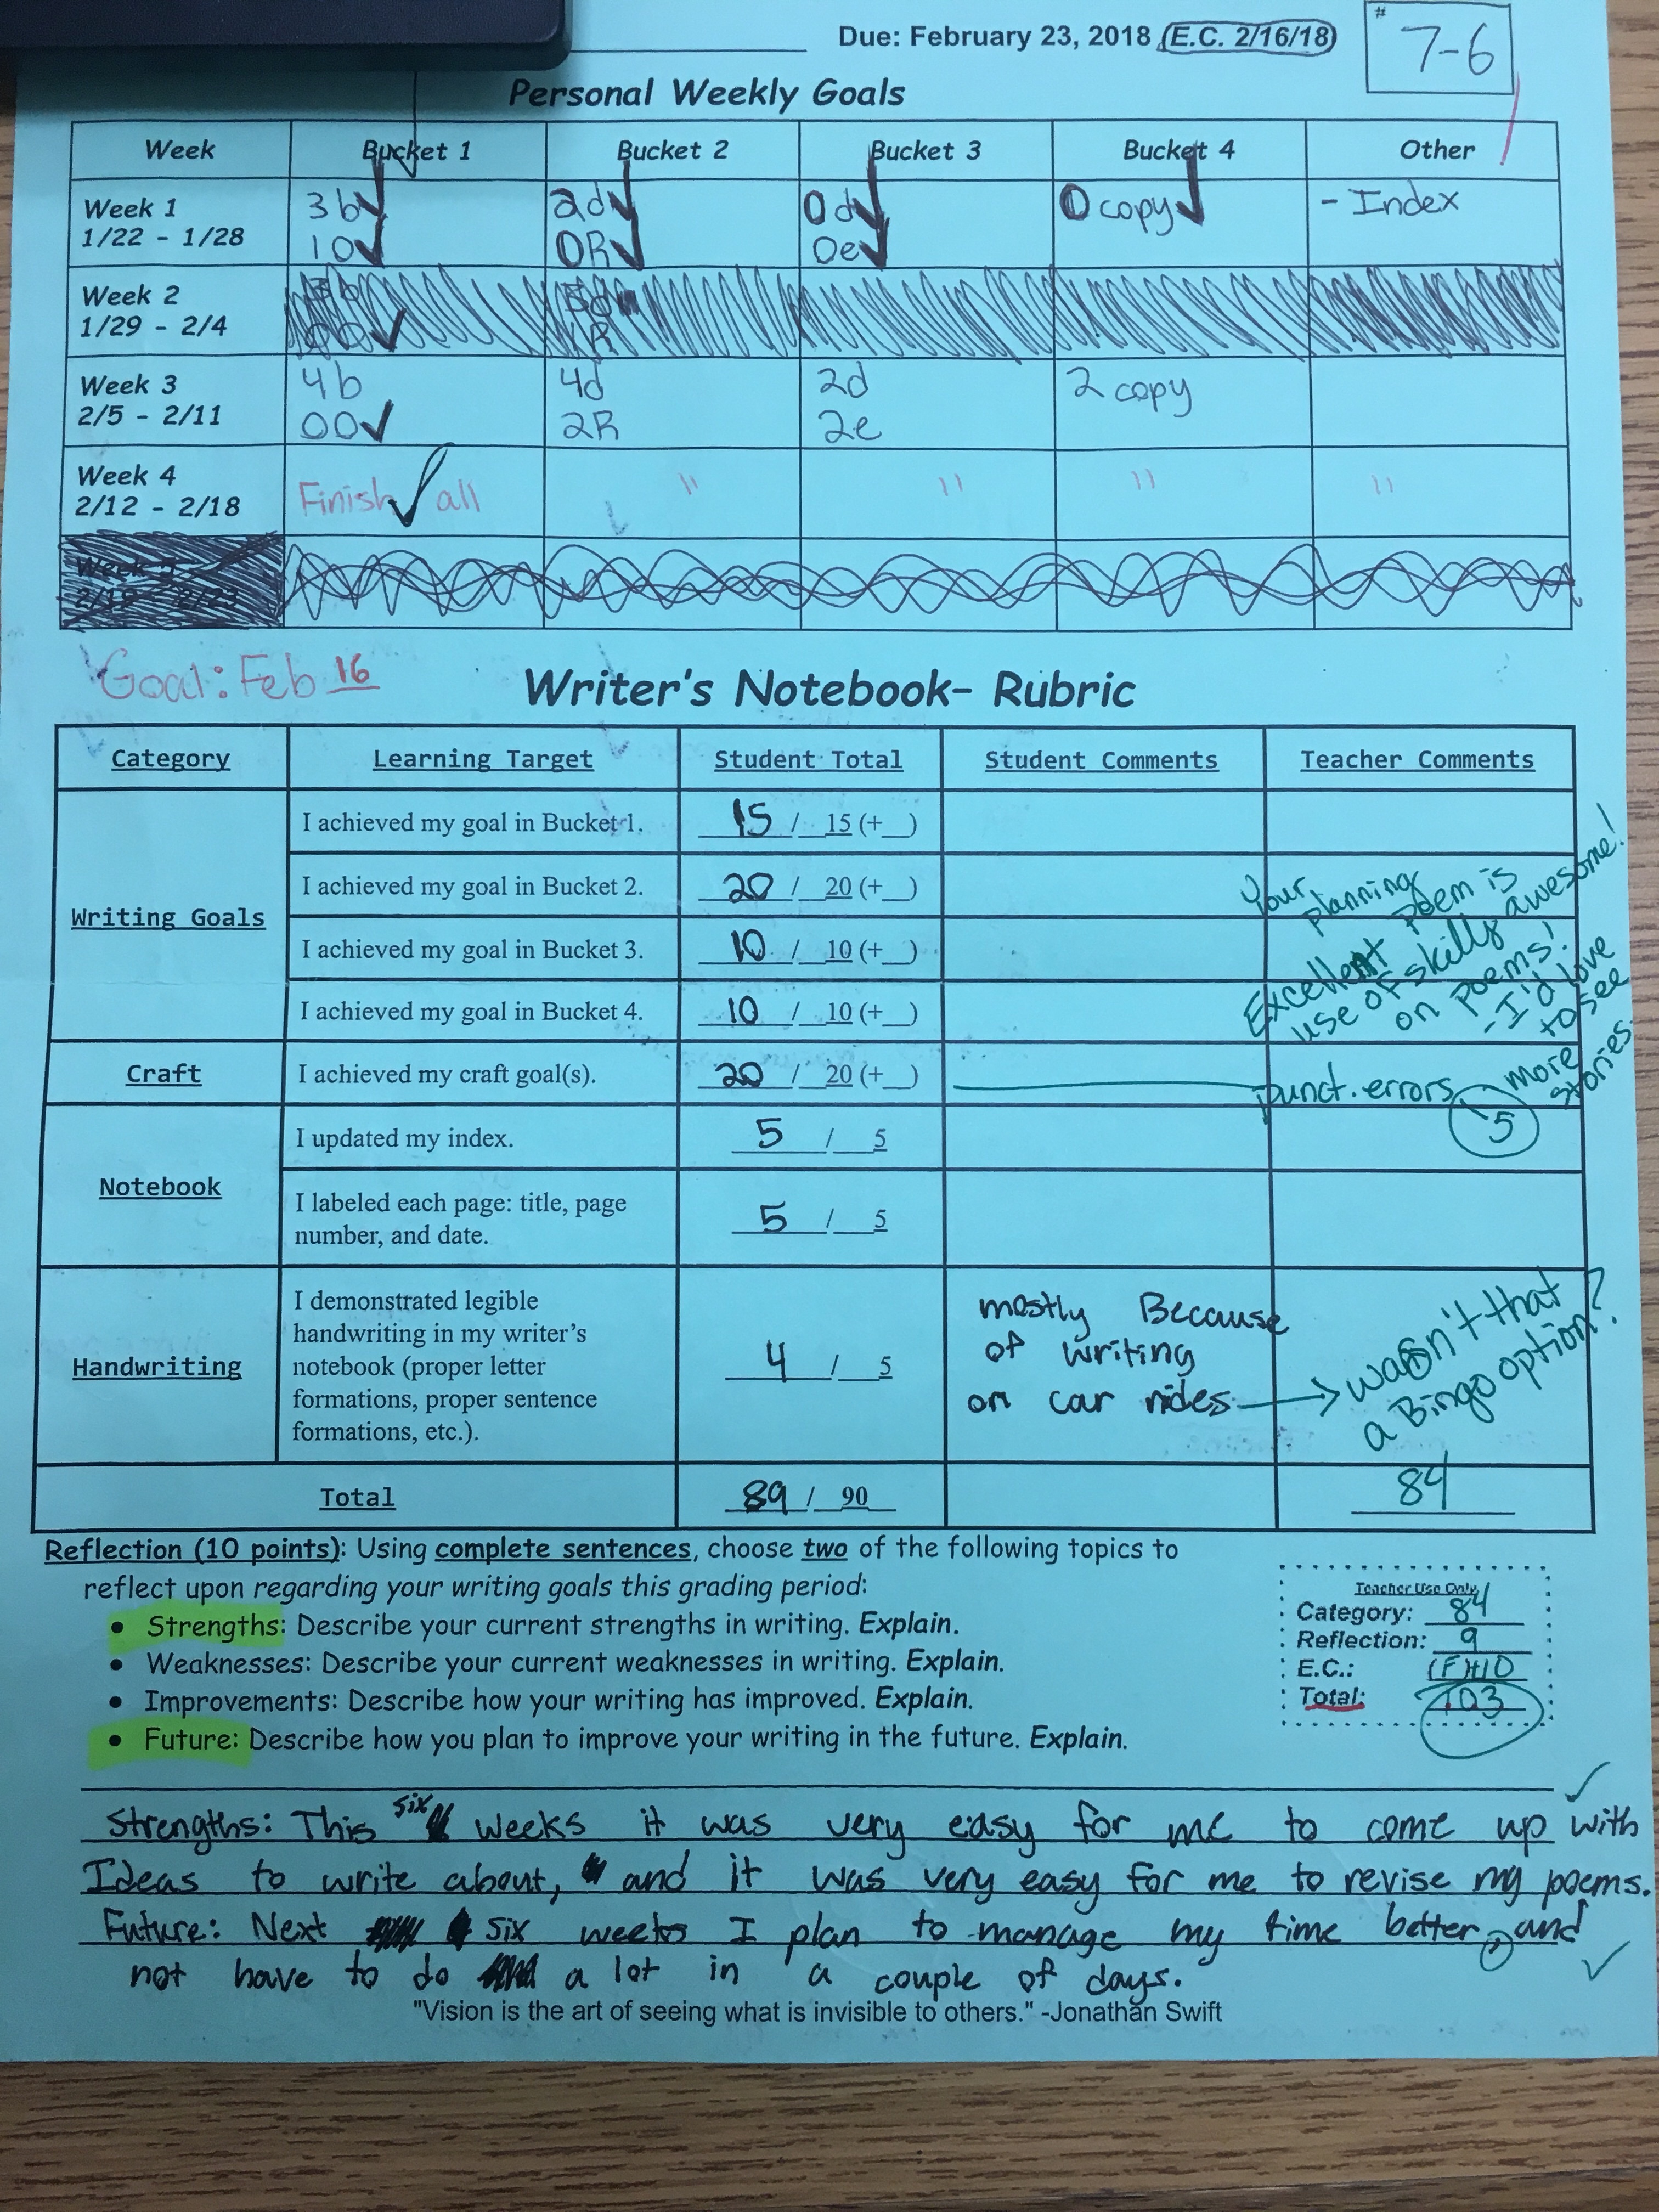 Due: February 23, 2018 (E.C. 2/16/18)
# 7-6
Personal Weekly Goals
Week Bucket 1 Bucket 2 Bucket 3 Bucket 4 Other
Week 1 3b ad 0d 0 copy - Index
1/22 - 1/28 10 0R 0e
Week 2
1/29 - 2/4 1R
Week 3 4b 4d 2d 2 copy
2/5 - 2/11 00 2R 2e
Week 4
2/12 - 2/18 Finish all " " " "
Goal: Feb 16
Writer's Notebook- Rubric
Category Learning Target Student Total Student Comments Teacher Comments
Writing Goals
I achieved my goal in Bucket 1. 15 / 15 (+__)
I achieved my goal in Bucket 2. 20 / 20 (+__)
I achieved my goal in Bucket 3. 10 / 10 (+__)
I achieved my goal in Bucket 4. 10 / 10 (+__)
Your
planning
poem is
awesome!
Excellent
use of skills
on poems!
- I'd love
to see
more
stories.
Craft I achieved my craft goal(s). 20 / 20 (+__) punct. errors
5
Notebook
I updated my index. 5 / 5
I labeled each page: title, page
number, and date. 5 / 5
Handwriting
I demonstrated legible
handwriting in my writer's
notebook (proper letter
formations, proper sentence
formations, etc.).
4 / 5
mostly Because
of writing
on car rides
wasn't that
a Bingo option?
Total 89 / 90 84
Reflection (10 points): Using complete sentences, choose two of the following topics to
reflect upon regarding your writing goals this grading period:
• Strengths: Describe your current strengths in writing. Explain.
• Weaknesses: Describe your current weaknesses in writing. Explain.
• Improvements: Describe how your writing has improved. Explain.
• Future: Describe how you plan to improve your writing in the future. Explain.
Teacher Use Only
Category: 84
Reflection: 9
E.C.: (F)+10
Total: 103
Strengths: This six weeks it was very easy for me to come up with
Ideas to write about, and it was very easy for me to revise my poems.
Future: Next six weeks I plan to manage my time better, and
not have to do a lot in a couple of days.
"Vision is the art of seeing what is invisible to others." -Jonathan Swift